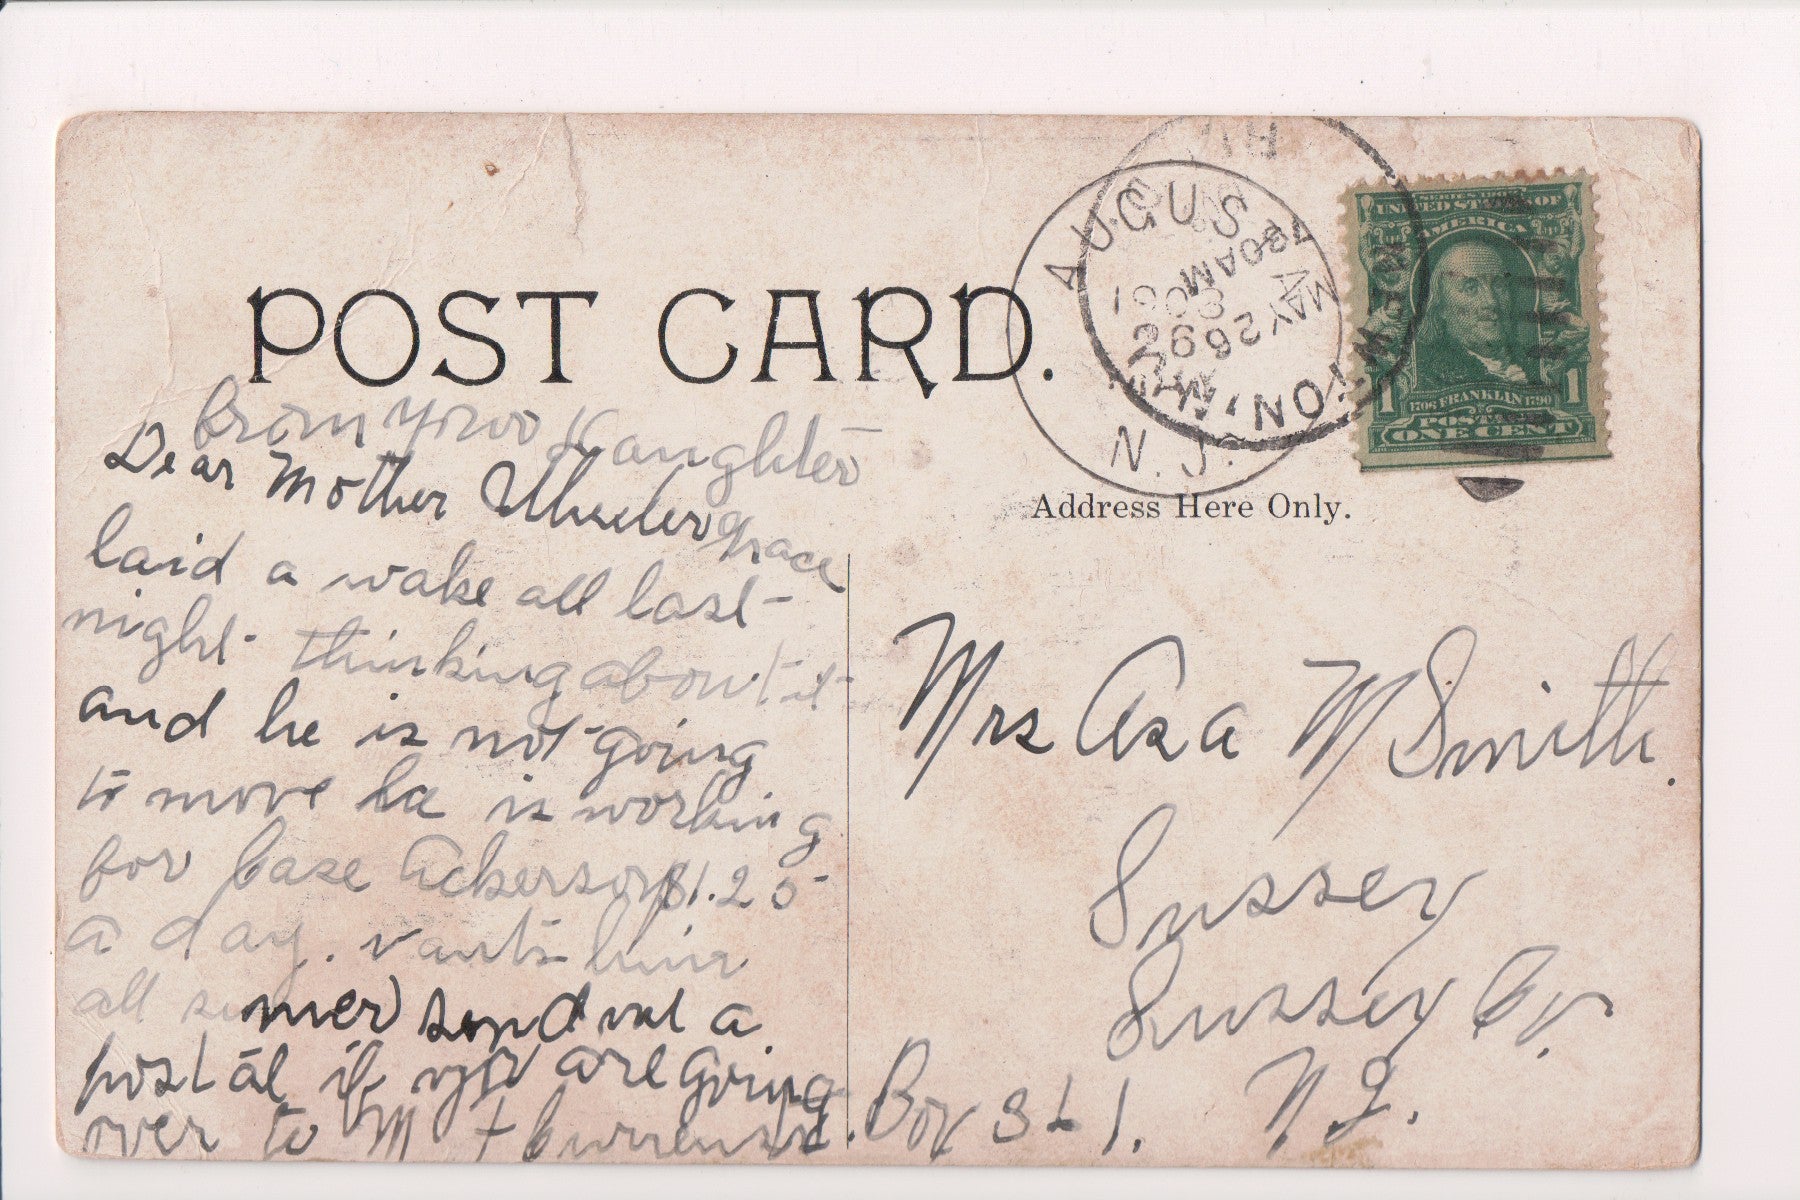 POST CARD.
from your Daughter
Dear Mother Wheeler grace
laid a wake all last
night thinking about it
and he is not going
to move he is working
for Case Ackerson $1.25
a day. wants him
all summer send me a
postal if you are going
over to M
AUGUSTA
N.J.
NEWTON, N.J.
MAY 26
30AM
SERIES 1902
UNITED STATES OF
AMERICA
1706 FRANKLIN 1790
POSTAGE
1 ONE CENT 1
Address Here Only.
Mrs Asa M Smith.
Sussey
Sussey Co.
N.J.
Box 1.